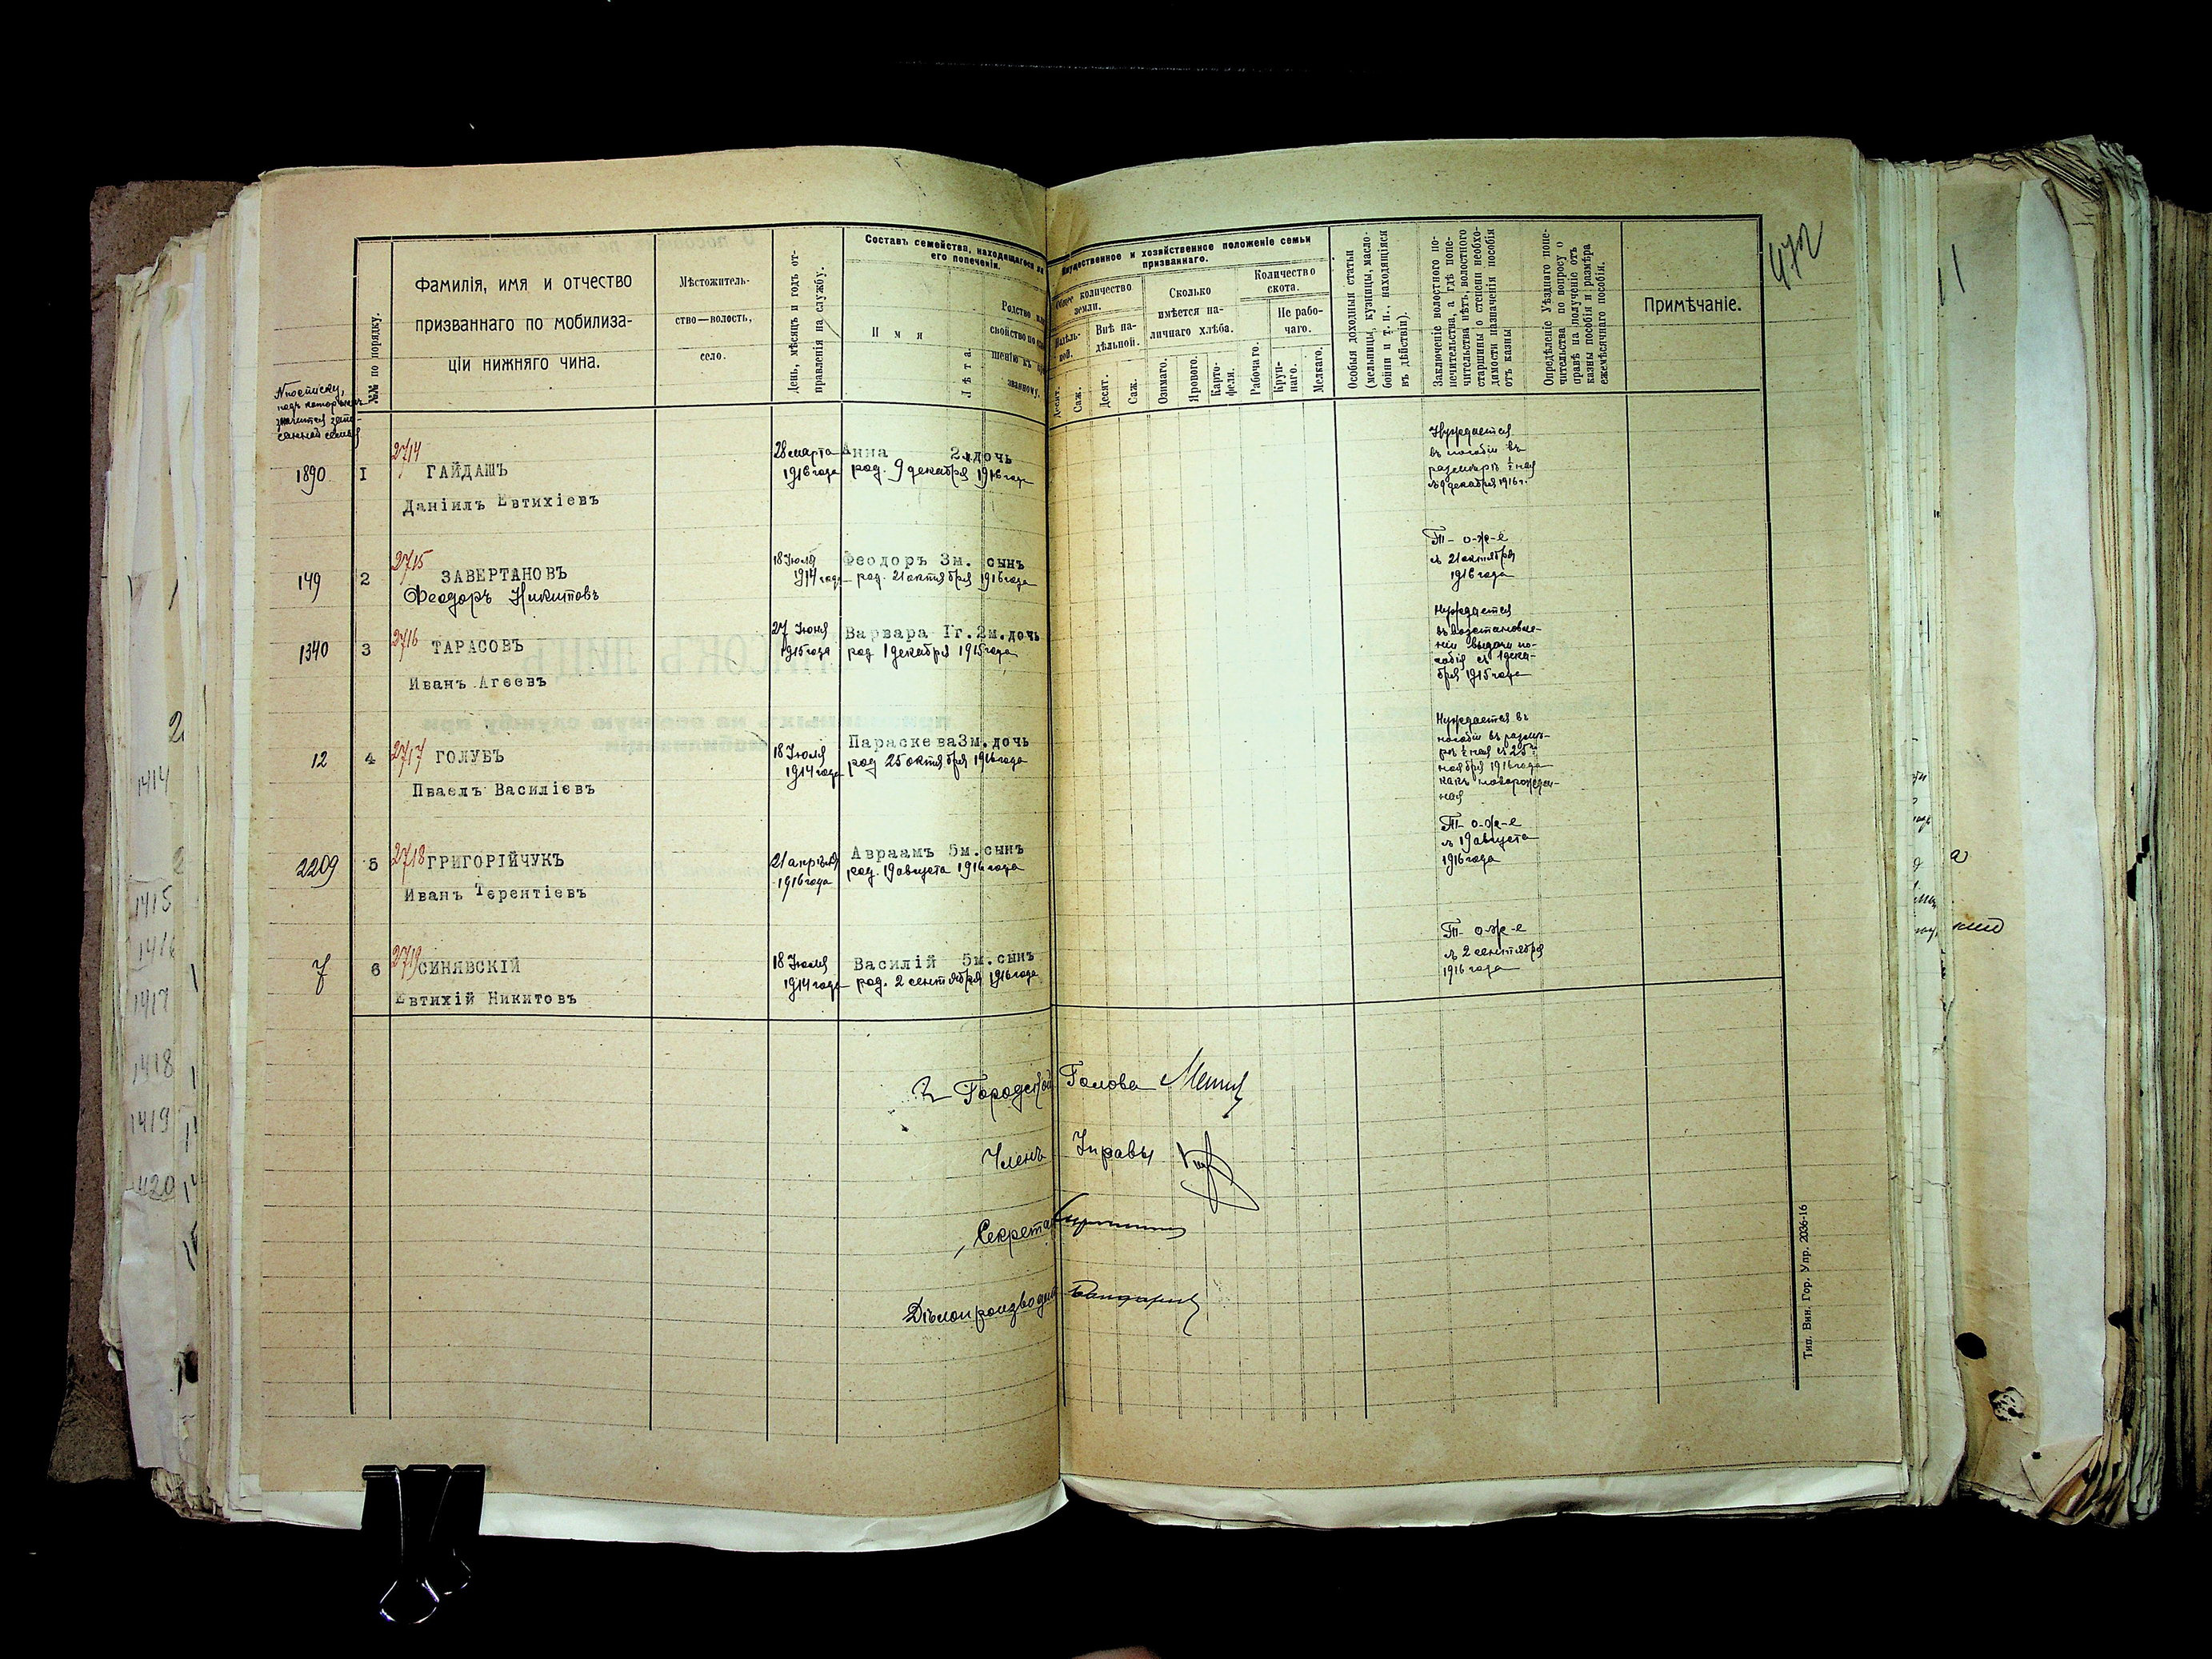 472
№№ по порядку.
Фамилія, имя и отчество
призваннаго по мобилиза-
ціи нижняго чина.
Мѣстожитель-
ство—волость,
село.
День, мѣсяцъ и годъ от-
правленія на службу.
Составъ семейства, находящагося на
его попеченіи.
И м я
Лѣта.
Родство или
свойство по
шенію къ при-
званному.
Имущественное и хозяйственное положеніе семьи
призваннаго.
Общее количество
земли.
Надѣль-
ной.
Внѣ на-
дѣльной.
Десят.
Саж.
Десят.
Саж.
Сколько
имѣется на-
личнаго хлѣба.
Озимаго.
Ярового.
Карто-
феля.
Количество
скота.
Рабочаго.
Не рабо-
чаго.
Круп-
наго.
Мелкаго.
Особыя доходныя статьи
(мельницы, кузницы, масло-
бойни и т. п., находящіяся
въ дѣйствіи).
Заключеніе волостного по-
печительства, а гдѣ попе-
чительства нѣтъ, волостного
старшины о степени необхо-
димости назначенія пособія
отъ казны
Опредѣленіе Уѣзднаго попе-
чительства по вопросу о
правѣ на полученіе отъ
казны пособія и размѣра
ежемѣсячнаго пособія.
Примѣчаніе.
№ по списку,
подъ которымъ
значится запи-
санной семья
1890
1
2714
ГАЙДАШЪ
Даніилъ Евтихіевъ
28 марта
1916 года
Анна 2м дочь
род. 9 декабря 1916 года
Нуждается
въ пособіи въ
размѣрѣ ½ пая
съ 9 декабря 1916 г.
149
2
2715
ЗАВЕРТАНОВЪ
Феодоръ Никитовъ
18 Іюля
1914 года
Феодоръ 3м. сынъ
род. 21 октября 1916 года
Т-о-ж-е
съ 21 октября
1916 года
1340
3
2716
ТАРАСОВЪ
Иванъ Агеевъ
27 Іюня
1915 года
Варвара Iг.2м.дочь
род 1 декабря 1915 года
Нуждается
въ возстановле-
ніи выдачи по-
собія съ 1 дека-
бря 1915 года
12
4
2717
ГОЛУБЪ
Пваелъ Василіевъ
18 Іюля
1914 года
Параскева3м.дочь
род 25 октября 1916 года
Нуждается въ
пособіи въ размѣ-
рѣ ½ пая съ 25го
ноября 1916 года
какъ новорожден-
ная
2209
5
2718
ГРИГОРІЙЧУКЪ
Иванъ Терентіевъ
21 апрѣля
1916 года
Авраамъ 5м.сынъ
род. 19 августа 1916 года
Т-о-ж-е
съ 19 августа
1916 года
7
6
2719
СИНЯВСКІЙ
Евтихій Никитовъ
18 Іюля
1914 года
Василій 5м.сынъ
род. 2 сентября 1916 года
Т-о-ж-е
съ 2 сентября
1916 года
Городской Голова
Членъ Управы
Секретарь
Дѣлопроизводит
Тип. Вин. Гор. Упр. 2036-16
1414
1415
1416
1417
1418
1419
1420